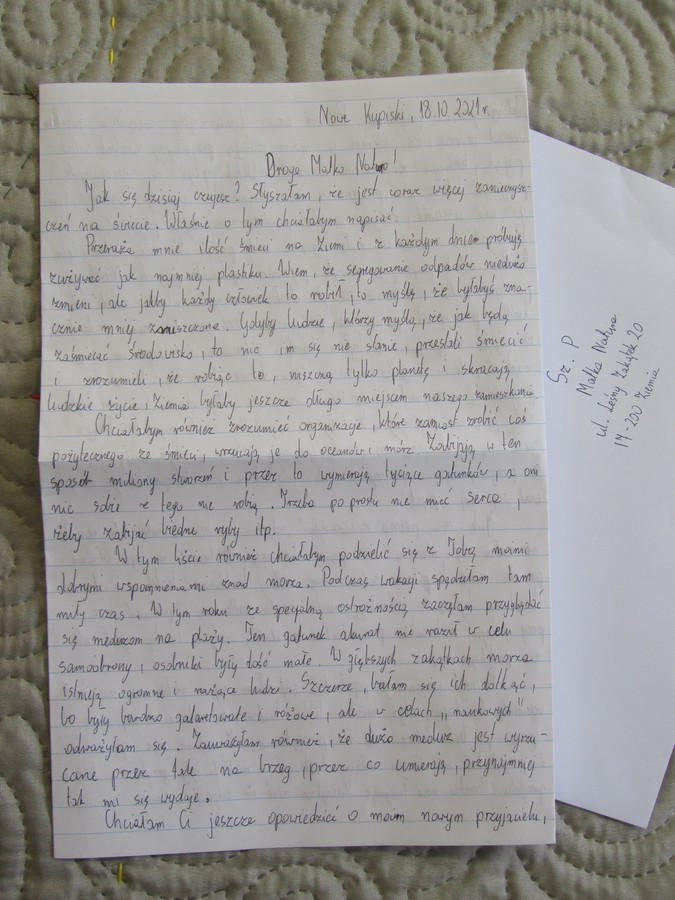 Nowe Kupiski, 18.10.2021r.
Droga Matko Naturo!
Jak się dzisiaj czujesz? Słyszałam, że jest coraz więcej zanieczysz-
czeń na świecie. Właśnie o tym chciałabym napisać.
Przeraża mnie ilość śmieci na Ziemi i z każdym dniem próbuję
zużywać jak najmniej plastiku. Wiem, że segregowanie odpadów niedużo
zmieni, ale jakby każdy człowiek to robił, to myślę, że byłabyś zna-
cznie mniej zaniszczona. Gdyby ludzie, którzy myślą, że jak będą
zaśmiecać środowisko, to nic im się nie stanie, przestali śmiecić
i zrozumieli, że robiąc to, niszczą tylko planetę i skracają
ludzkie życie, Ziemia byłaby jeszcze długo miejscem naszego zamieszkania.
Chciałabym również zrozumieć organizacje, które zamiast zrobić coś
pożytecznego ze śmieci, wrzucają je do oceanów i mórz. Zabijają w ten
sposób miliony stworzeń i przez to wymierają tysiące gatunków, a oni
nic sobie z tego nie robią. Trzeba po prostu nie mieć serca,
żeby zabijać biedne ryby itp.
W tym liście również chciałabym podzielić się z Tobą moimi
dobrymi wspomnieniami znad morza. Podczas wakacji spędziłam tam
miły czas. W tym roku ze specjalną ostrożnością zaczęłam przyglądać
się meduzom na plaży. Ten gatunek akurat nie raził w celu
samoobrony, osobniki były dość małe. W głębszych zakątkach morza
istnieją ogromne i rażące ludzi. Szczerze, bałam się ich dotknąć,
bo były bardzo galaretowate i różowe, ale w celach „naukowych”
odważyłam się. Zauważyłam również, że dużo meduz jest wyrzu-
cane przez fale na brzeg, przez co umierają, przynajmniej
tak mi się wydaje.
Chciałam Ci jeszcze opowiedzieć o moim nowym przyjacielu,
Sz. P
Matka Natura
ul. Leśny Zakątek 20
14-200 Ziemia